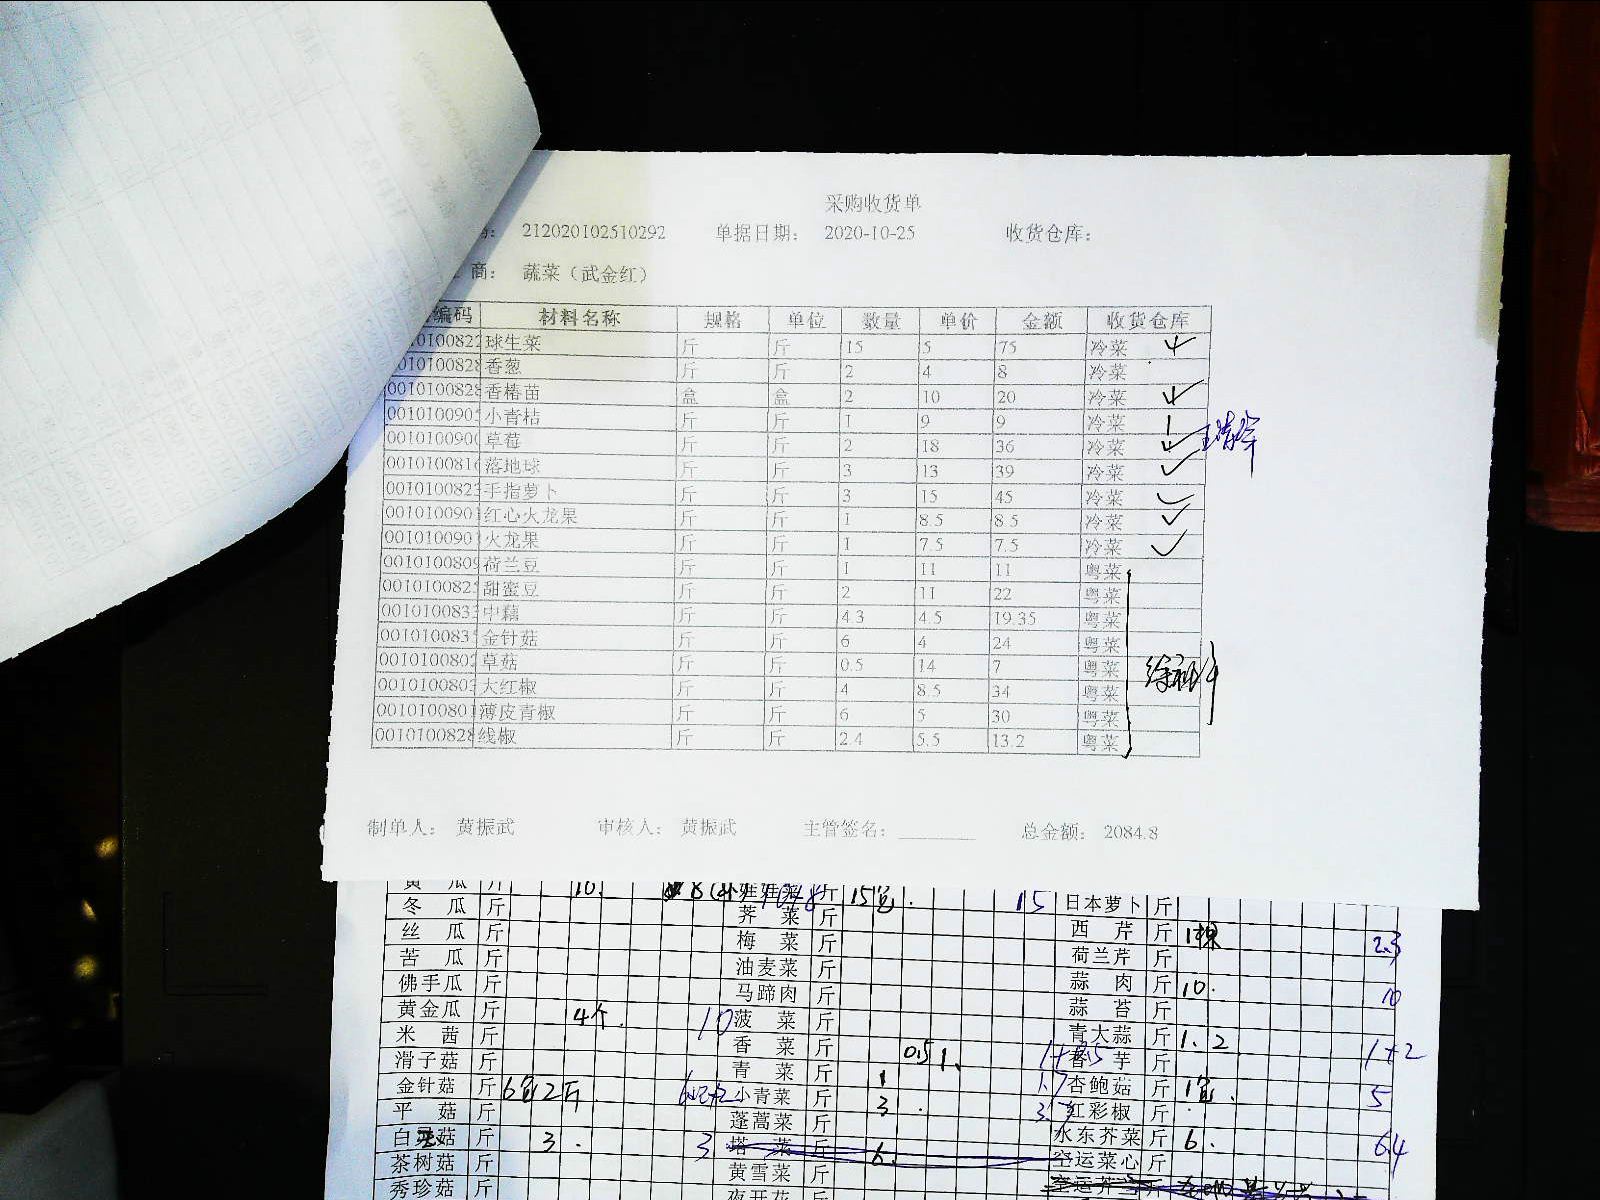 采购收货单
212020102510292 单据日期： 2020-10-25 收货仓库：
商： 蔬菜（武金红）
编码 材料名称 规格 单位 数量 单价 金额 收货仓库
010100822 球生菜 斤 斤 15 5 75 冷菜
010100828 香葱 斤 斤 2 4 8 冷菜
0010100828 香椿苗 盒 盒 2 10 20 冷菜
0010100905 小青桔 斤 斤 1 9 9 冷菜
0010100900 草莓 斤 斤 2 18 36 冷菜
0010100816 落地球 斤 斤 3 13 39 冷菜
0010100823 手指萝卜 斤 斤 3 15 45 冷菜
0010100901 红心火龙果 斤 斤 1 8.5 8.5 冷菜
0010100901 火龙果 斤 斤 1 7.5 7.5 冷菜
0010100809 荷兰豆 斤 斤 1 11 11 粤菜
0010100825 甜蜜豆 斤 斤 2 11 22 粤菜
0010100833 中藕 斤 斤 4.3 4.5 19.35 粤菜
0010100835 金针菇 斤 斤 6 4 24 粤菜
0010100802 草菇 斤 斤 0.5 14 7 粤菜
0010100803 大红椒 斤 斤 4 8.5 34 粤菜
0010100801 薄皮青椒 斤 斤 6 5 30 粤菜
0010100828 线椒 斤 斤 2.4 5.5 13.2 粤菜
制单人： 黄振武 审核人： 黄振武 主管签名： 总金额： 2084.8
黄瓜 斤 10. 斤 15包. 15 日本萝卜 斤
冬瓜 斤 荠菜 斤 西芹 斤 1棵 2.3
丝瓜 斤 梅菜 斤 荷兰芹 斤
苦瓜 斤 油麦菜 斤 蒜肉 斤 10. 10
佛手瓜 斤 马蹄肉 斤 蒜苔 斤
黄金瓜 斤 4个. 10 菠菜 斤 青大蒜 斤 1.2 1+2
米茜 斤 香菜 斤 0.5 1. 香芋 斤
滑子菇 斤 青菜 斤 1 1.7 杏鲍菇 斤 1包. 5
金针菇 斤 6包2斤 小青菜 斤 3. 红彩椒 斤
平菇 斤 蓬蒿菜 斤 水东芥菜 斤 6. 6.4
白灵菇 斤 3. 3 塔菜 斤 6. 空运菜心 斤
茶树菇 斤 黄雪菜 斤
秀珍菇 斤